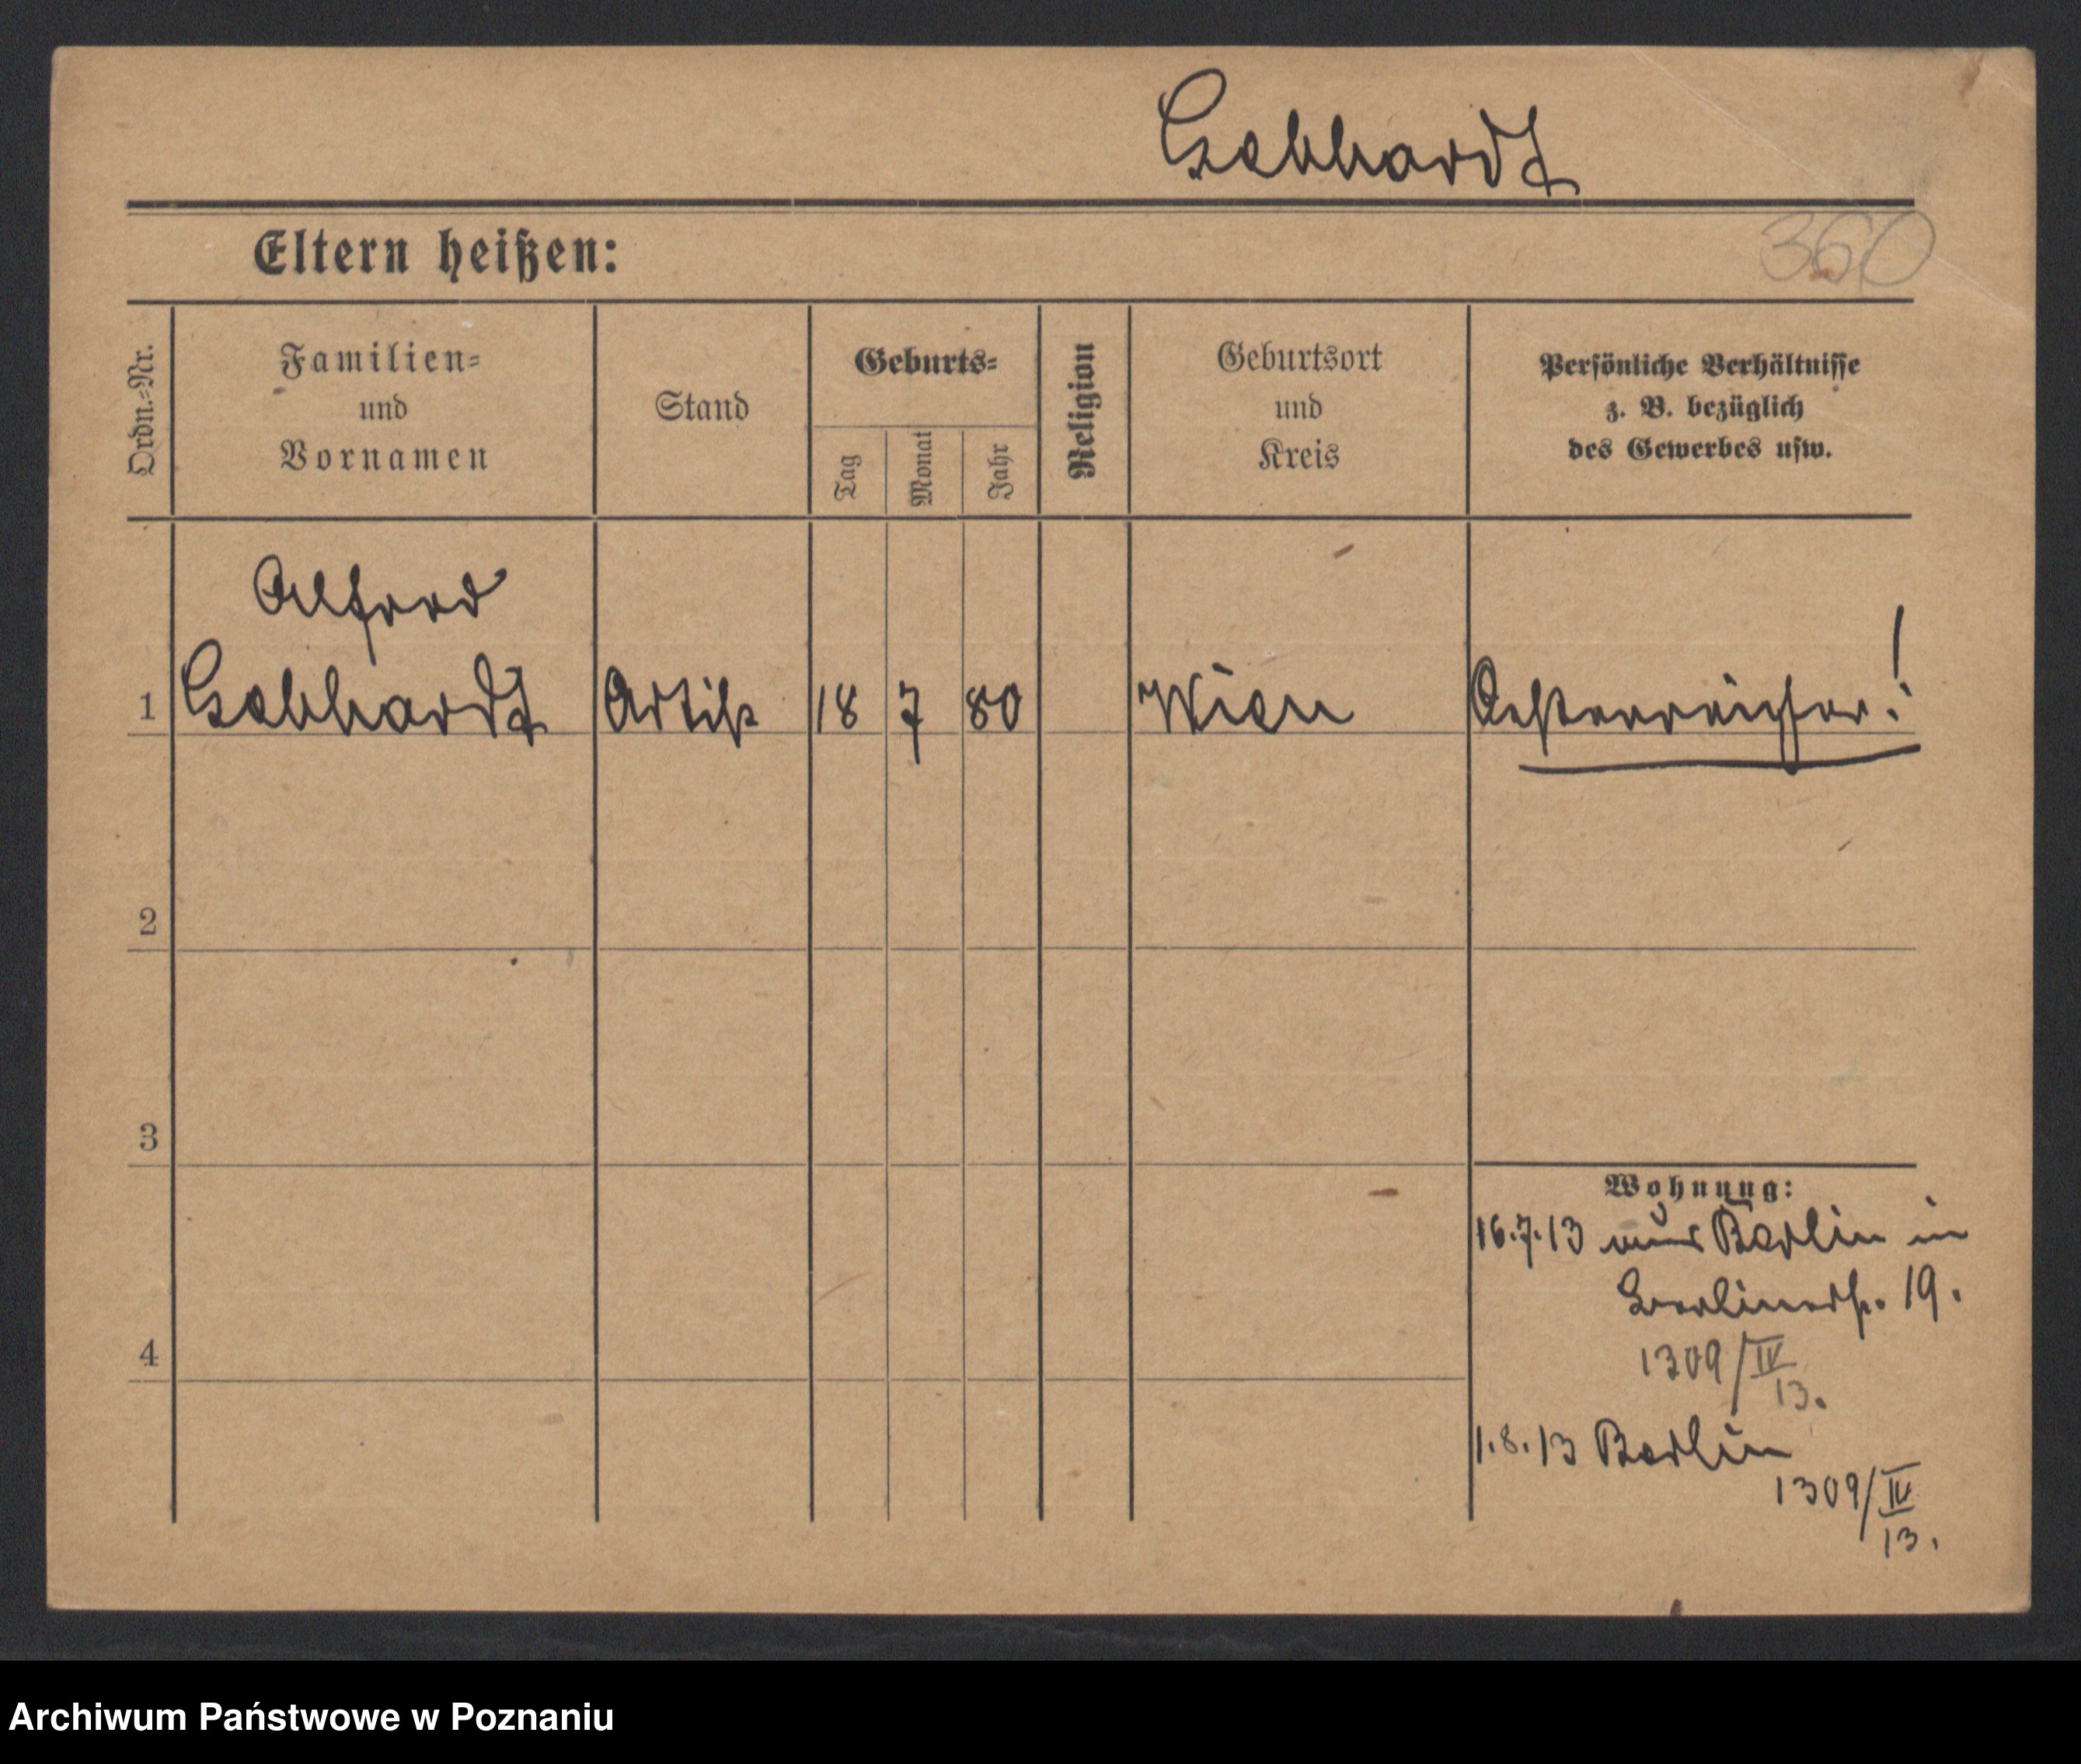 Gebhardt
Eltern heißen:
360
Ordn.-Nr.
Familien-
und
Vornamen
Stand
Geburts-
Tag
Monat
Jahr
Religion
Geburtsort
und
Kreis
Persönliche Verhältnisse
z. B. bezüglich
des Gewerbes usw.
Alfred
1 Gebhardt Artist 18 7 80 Wien Oesterreicher!
2
3
4
Wohnung:
16.7.13 aus Berlin in
Berlinerstr. 19.
1309/IV
13.
1.8.13 Berlin
1309/IV
13.
Archiwum Państwowe w Poznaniu